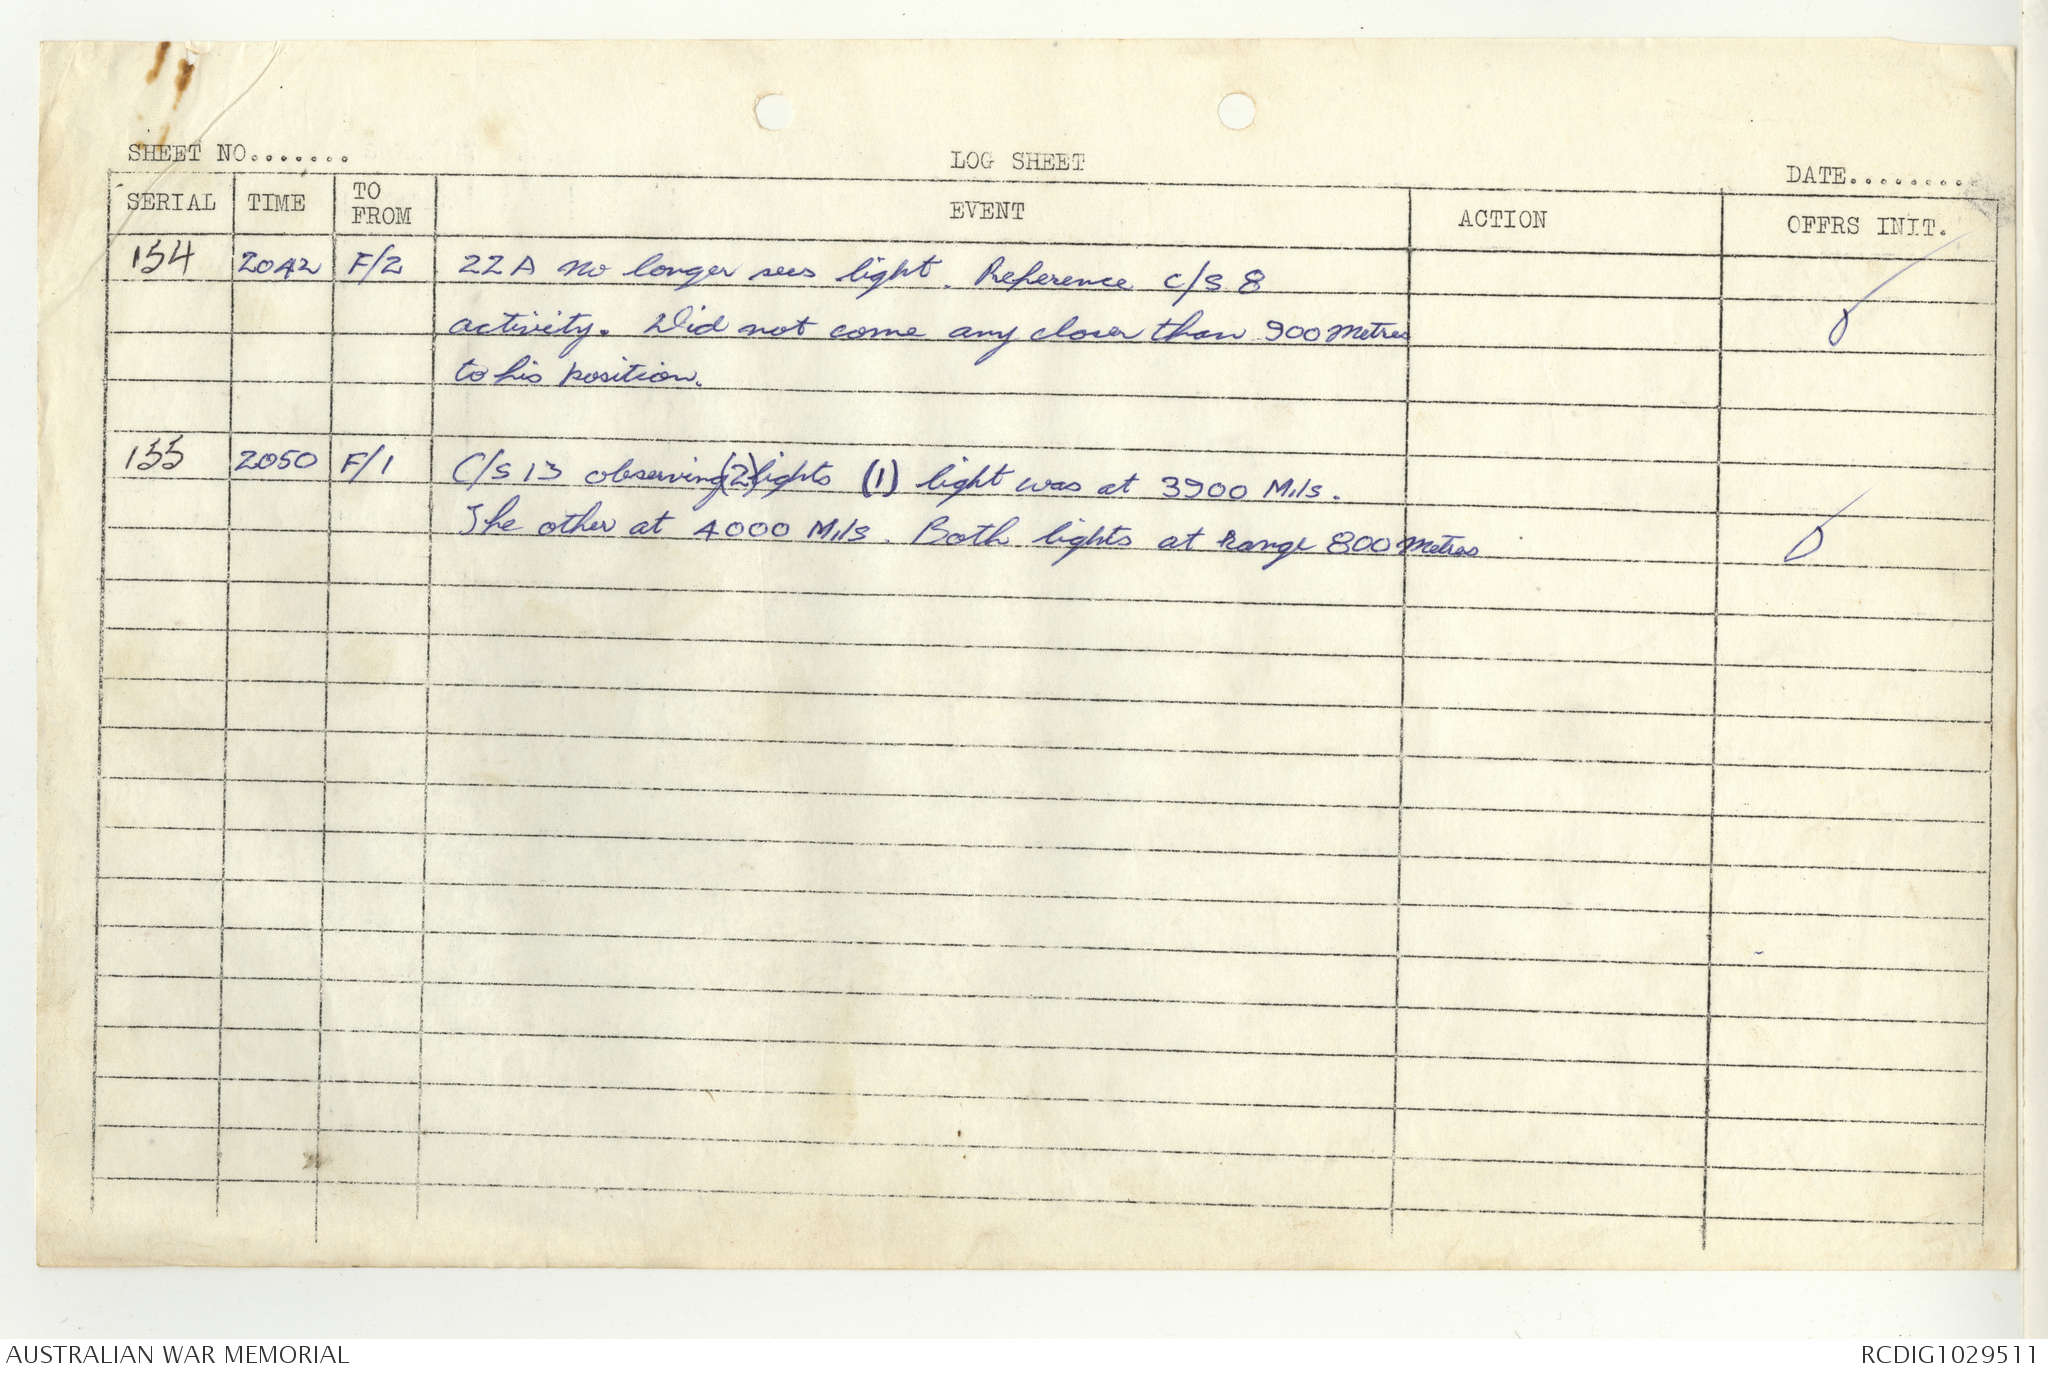 SHEET NO.......
LOG SHEET
DATE.........
SERIAL TIME TO FROM EVENT ACTION OFFRS INIT.
154 2042 F/2 22A no longer sees light. Reference C/S 8
activity. Did not come any closer than 900 Metres
to his position.
155 2050 F/1 C/S 13 observing (2) lights (1) light was at 3900 Mils.
The other at 4000 Mils. Both lights at range 800 Metres
AUSTRALIAN WAR MEMORIAL
RCDIG1029511